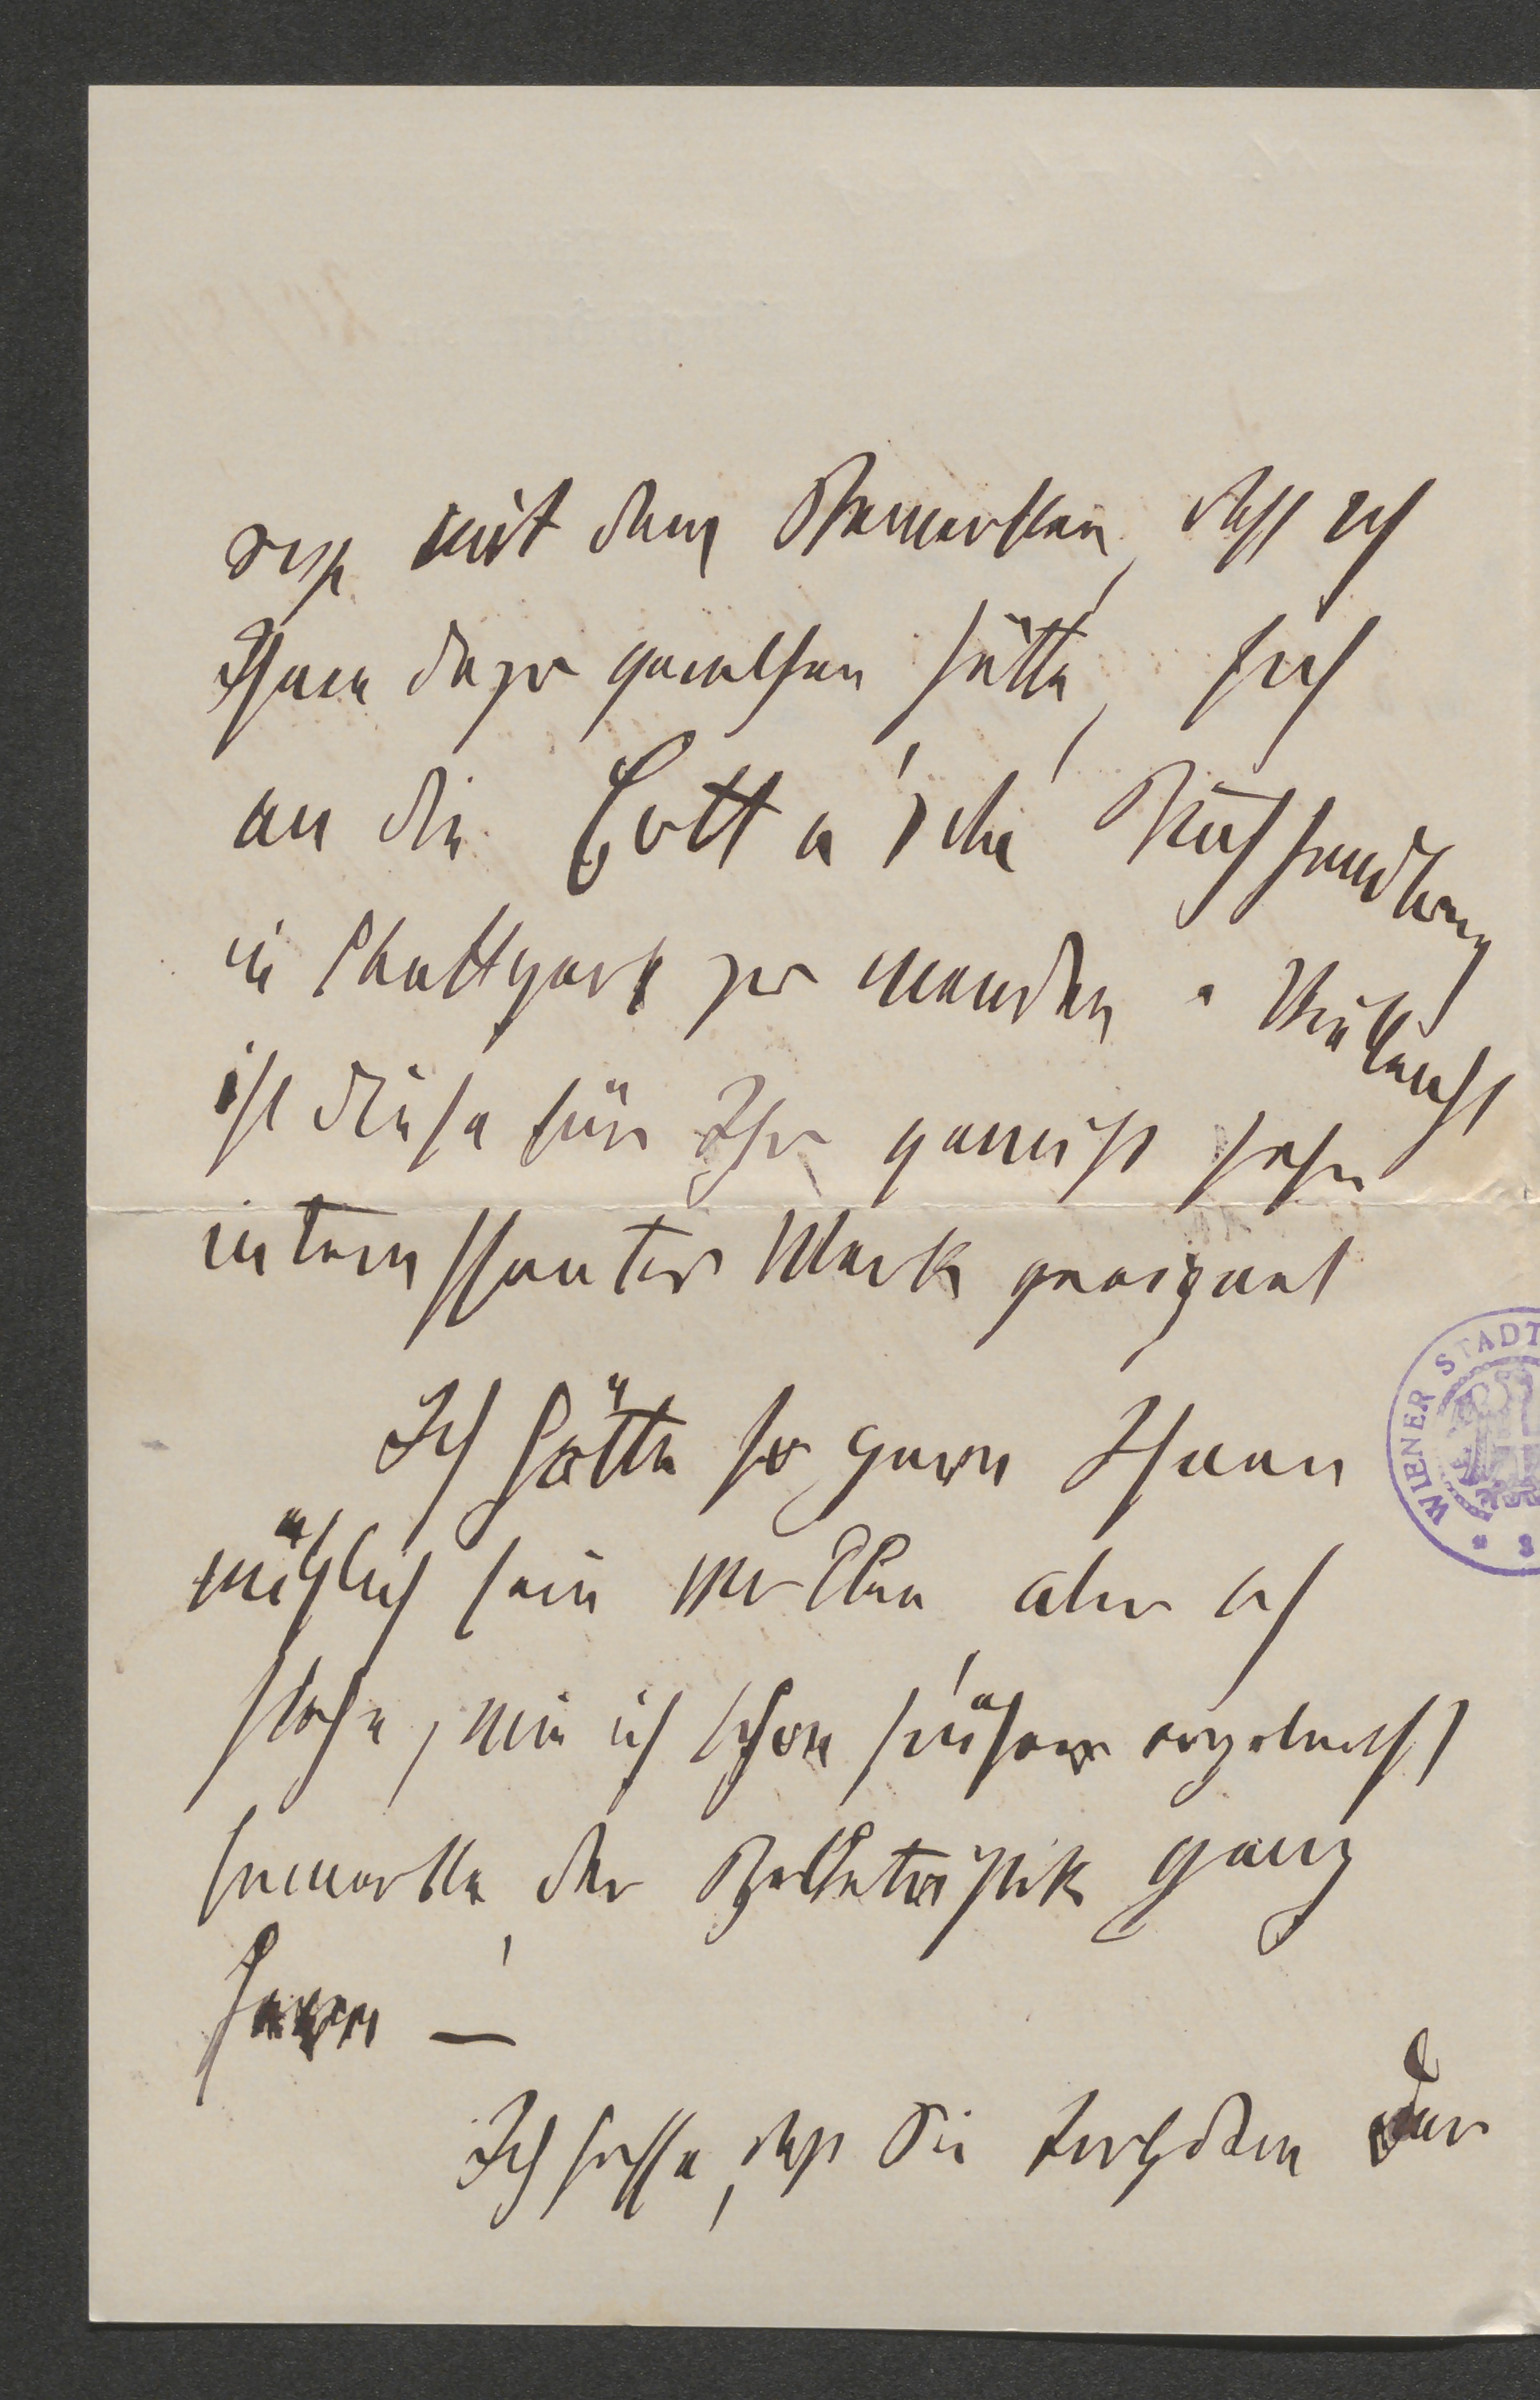 mit dem Bemerken, daß ich
Ihnen dazu gerathen hätte, sich
an die Cotta'sche Buchhandlung
in Stuttgart zu wenden. Vielleicht
ist diese für Ihr gewiß sehr
interessantes Werk geeignet
Ich hätte so gern Ihnen
nützlich sein wollen aber ich
stehe, wie ich schon früher ergebenst
bemerkte, der Belletristik ganz
fern —
Ich hoffe, daß Sie trotzdem
WIENER STADT